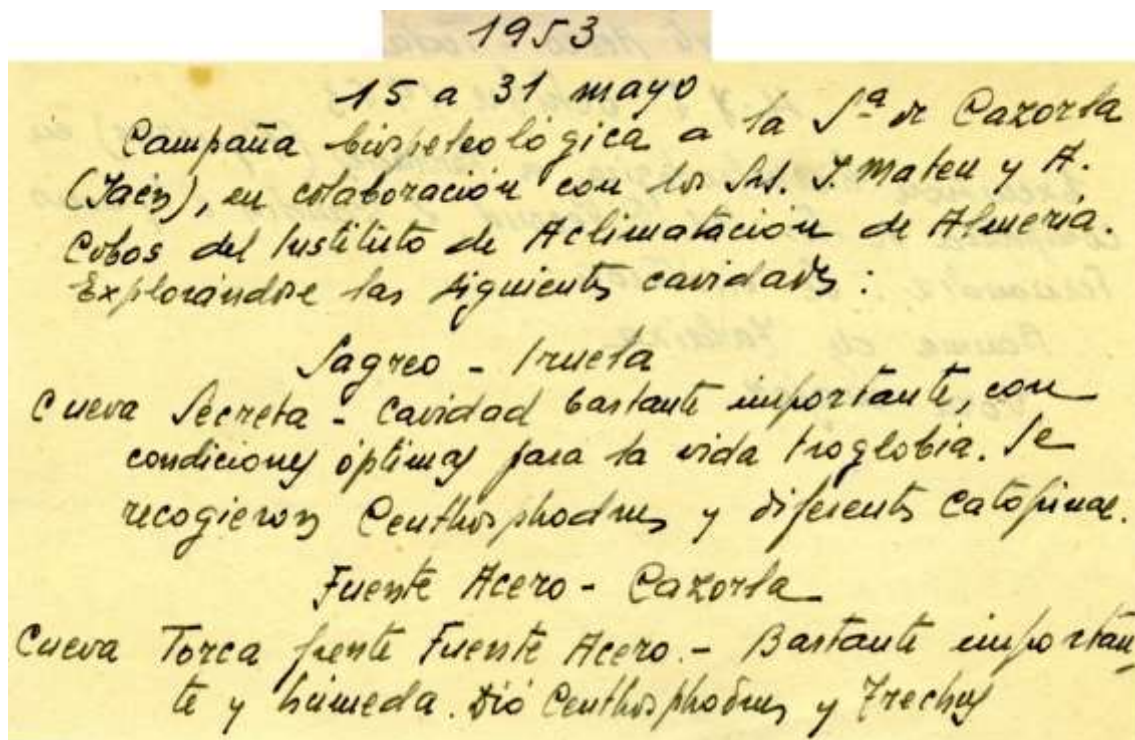 1953
15 a 31 mayo
Campaña bioespeleológica a la Sª de Cazorla
(Jaén), en colaboración con los Srs. J. Mateu y A.
Cobos del Instituto de Aclimatación de Almería.
Explorándose las siguientes cavidades:
Sagreo - Iruela
Cueva Secreta - Cavidad bastante importante, con
condiciones óptimas para la vida troglobia. Se
recogieron Ceuthosphodrus y diferentes Catopinae.
Fuente Acero - Cazorla
Cueva Torca frente Fuente Acero. - Bastante importan
te y húmeda. Dió Ceuthosphodrus y Trechus